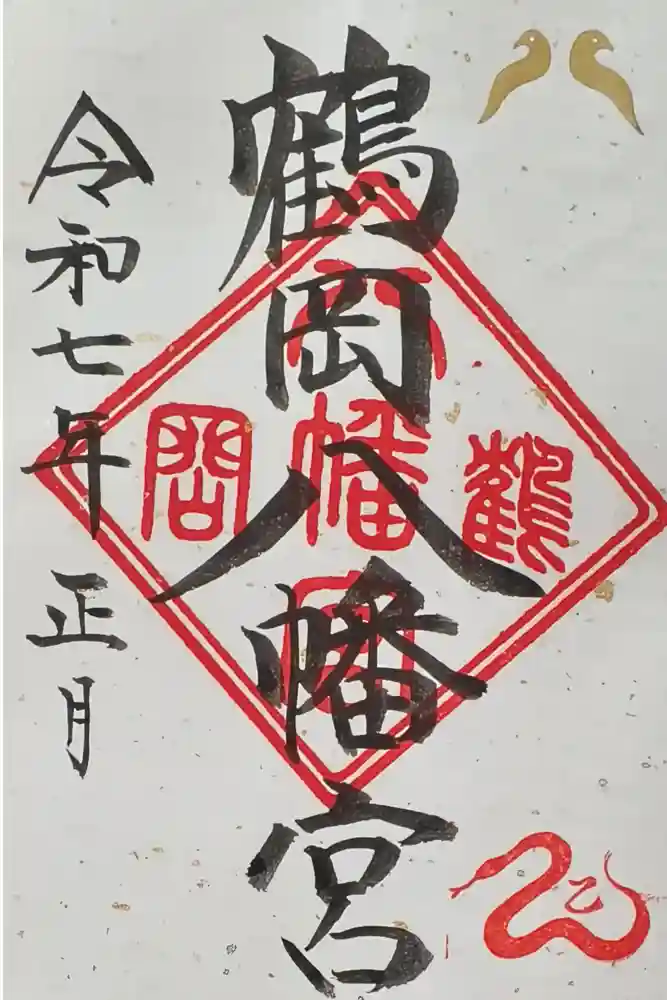 鶴岡八幡宮
令和七年 正月
鶴
八幡宮
岡
乙